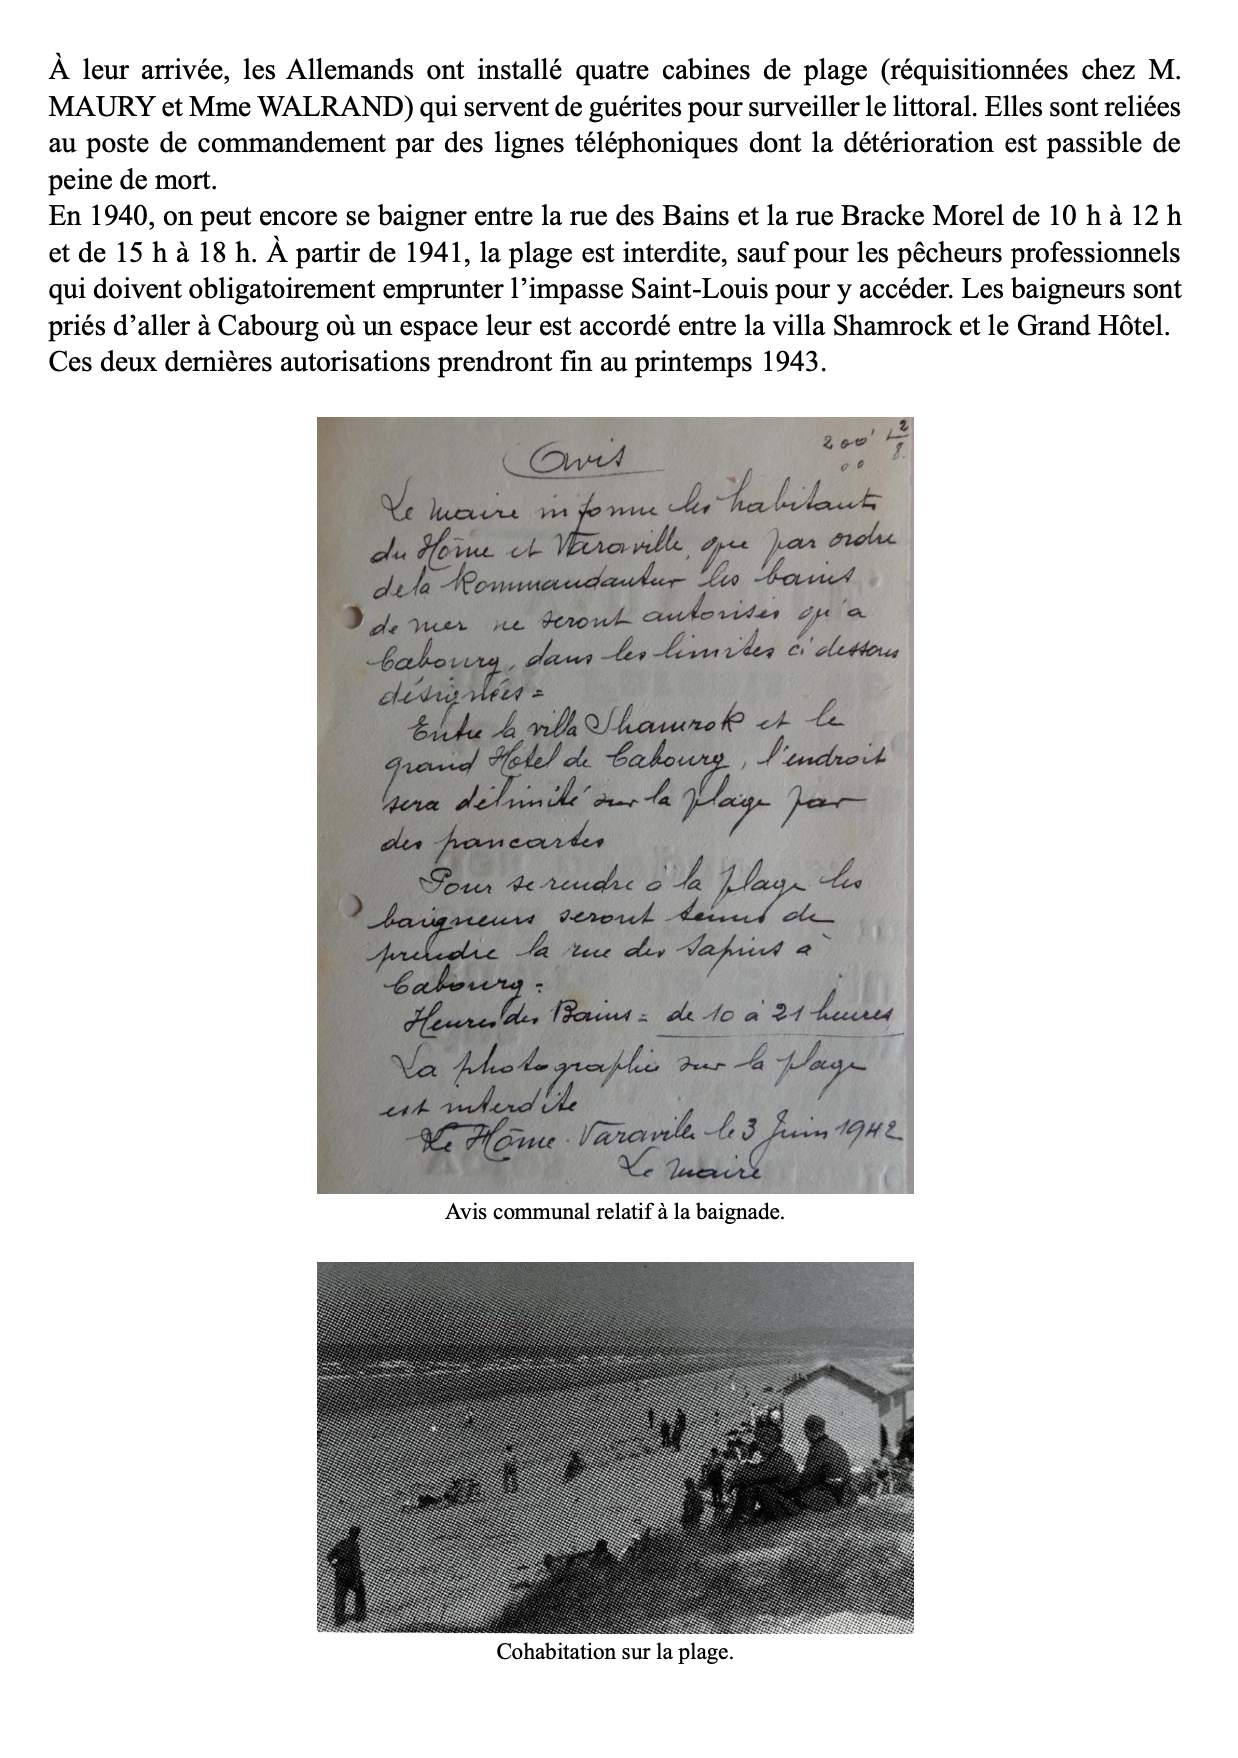 À leur arrivée, les Allemands ont installé quatre cabines de plage (réquisitionnées chez M.
MAURY et Mme WALRAND) qui servent de guérites pour surveiller le littoral. Elles sont reliées
au poste de commandement par des lignes téléphoniques dont la détérioration est passible de
peine de mort.
En 1940, on peut encore se baigner entre la rue des Bains et la rue Bracke Morel de 10 h à 12 h
et de 15 h à 18 h. À partir de 1941, la plage est interdite, sauf pour les pêcheurs professionnels
qui doivent obligatoirement emprunter l’impasse Saint-Louis pour y accéder. Les baigneurs sont
priés d’aller à Cabourg où un espace leur est accordé entre la villa Shamrock et le Grand Hôtel.
Ces deux dernières autorisations prendront fin au printemps 1943.
200
Avis
Le maire informe les habitants
du Hôme et Varaville, que par ordre
de la Kommandantur les bains
de mer ne seront autorisés qu'a
Cabourg, dans les limites ci dessous
désignées =
Entre la villa Shamrok et le
grand Hôtel de Cabourg, l'endroit
sera délimité sur la plage par
des pancartes
Pour se rendre à la plage les
baigneurs seront tenus de
prendre la rue des sapins à
Cabourg =
Heures des Bains = de 10 à 21 heures
La photographie sur la plage
est interdite
Le Hôme. Varaville le 3 Juin 1942
Le maire
Avis communal relatif à la baignade.
Cohabitation sur la plage.